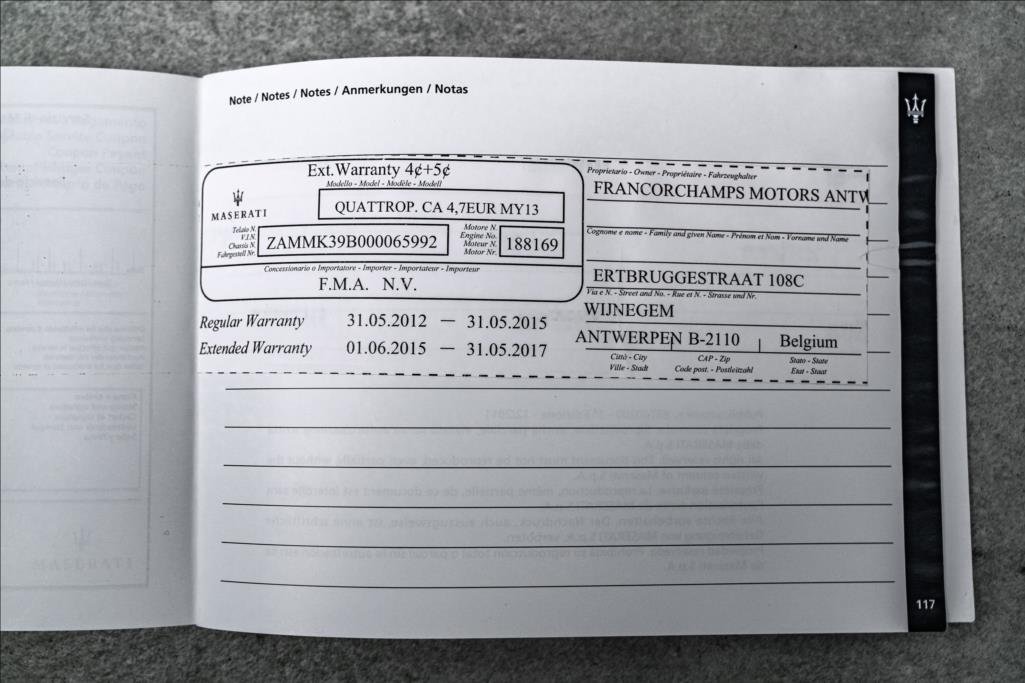 Note / Notes / Notes / Anmerkungen / Notas
Ext.Warranty 4¢+5¢
Modello - Model - Modèle - Modell
MASERATI
QUATTROP. CA 4,7EUR MY13
Telaio N.
V.I.N.
Chassis N.
Fahrgestell Nr.
ZAMMK39B000065992
Motore N.
Engine No.
Moteur N.
Motor Nr.
188169
Concessionario o Importatore - Importer - Importateur - Importeur
F.M.A. N.V.
Regular Warranty 31.05.2012 — 31.05.2015
Extended Warranty 01.06.2015 — 31.05.2017
Proprietario - Owner - Propriétaire - Fahrzeughalter
FRANCORCHAMPS MOTORS ANTW
Cognome e nome - Family and given Name - Prénom et Nom - Vorname und Name
ERTBRUGGESTRAAT 108C
Via e N. - Street and No. - Rue et N. - Strasse und Nr.
WIJNEGEM
ANTWERPEN B-2110 Belgium
Città - City CAP - Zip Stato - State
Ville - Stadt Code post. - Postleitzahl Etat - Staat
117